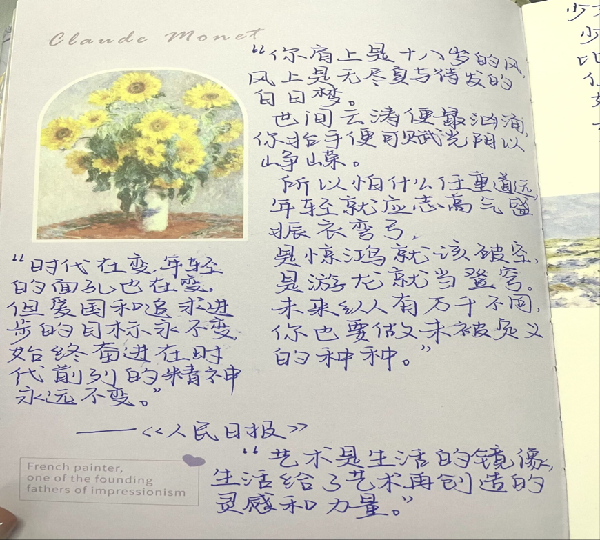 Claude Monet
“你肩上是十八岁的风,
风上是无尽夏与待发的
白日梦。
世间云涛便最汹涌,
你抬手便可赋光阴以
峥嵘。
所以怕什么任重道远
年轻就应志高气盛
振衣弯弓,
是惊鸿就该破空,
是游龙就当登穹。
未来纵人有万千不同,
你也要做又未被定义
的种种。”
“时代在变,年轻
的面孔也在变,
但爱国和追求进
步的目标永不变
始终奋进在时
代前列的精神
永远不变。”
——《人民日报》
“艺术是生活的镜像,
生活给了艺术再创造的
灵感和力量。”
French painter,
one of the founding
fathers of impressionism
少